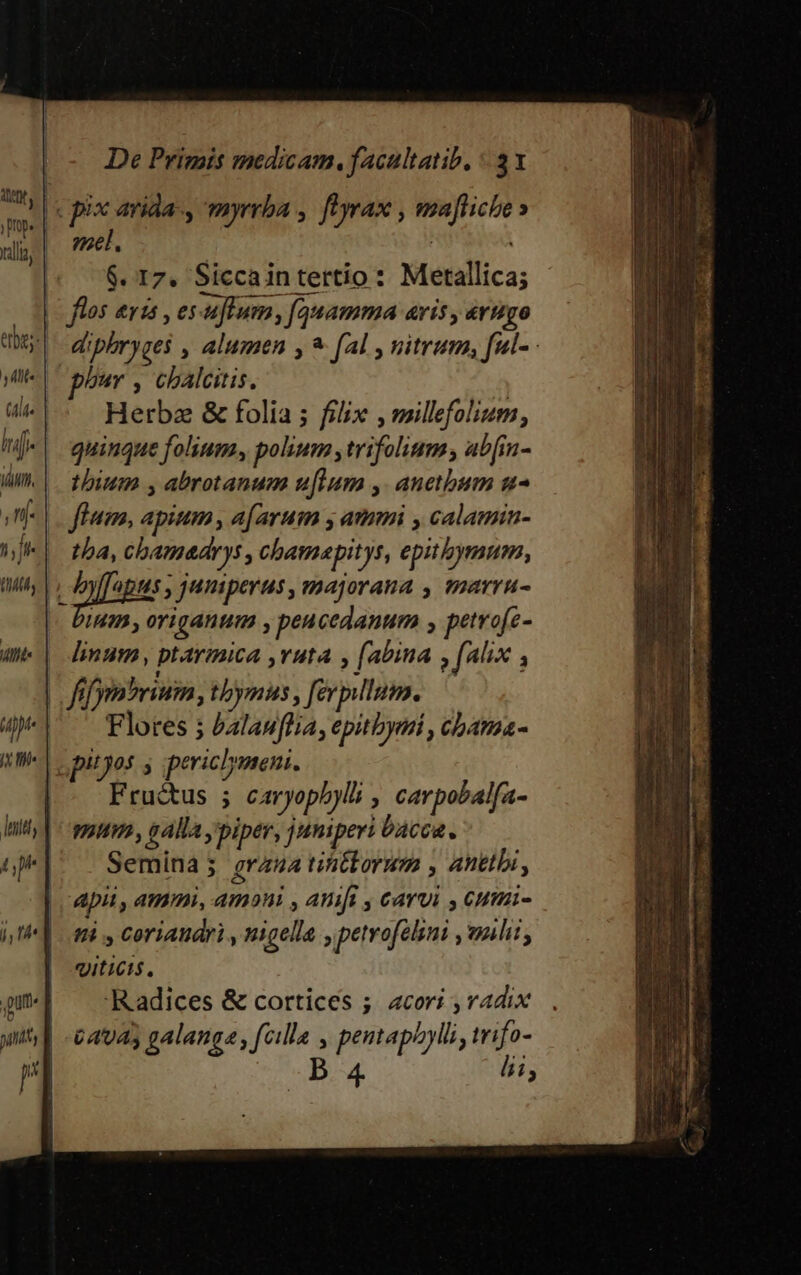 De Primis medicam. facultatib. 31
pix arida, myrrha, ſtyrax, maſtiche,
mel.
§. 17. Sicca in tertio: Metallica;
flos æris, es uſtum, ſquamma æris, ærugo
diphryges, alumen, & ſal, nitrum, ſul-
phur, chalcitis.
Herbæ & folia; filix, millefolium,
quinque folium, polium, trifolium, abſin-
thium, abrotanum uſtum, anethum u-
ſtum, apium, aſarum, ammi, calamin-
tha, chamædrys, chamæpitys, epithymum,
hyſſopus, juniperus, majorana, marru-
bium, origanum, peucedanum, petroſe-
linum, ptarmica, ruta, ſabina, ſalix,
ſiſymbrium, thymus, ſerpillum.
Flores; balauſtia, epithymi, chamæ-
pityos, periclymeni.
Fructus; caryophylli, carpobalſa-
mum, galla, piper, juniperi bacca.
Semina; grana tinctorum, anethi,
apii, ammi, amomi, aniſi, carvi, cumi-
ni, coriandri, nigellæ, petroſelini, milii,
viticis.
Radices & cortices; acori, radix
cava, galangæ, ſcillæ, pentaphylli, trifo-
B 4 lii,